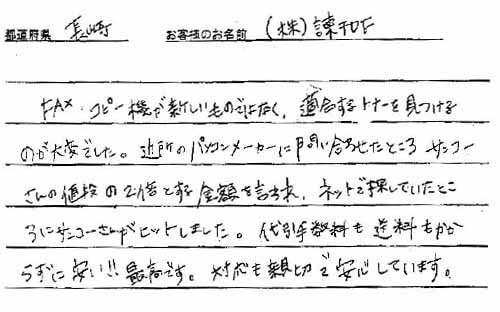 都道府県 長崎 お客様のお名前 (株)諫干DF
FAX・コピー機が新しいものではなく、適合するトナーを見つける
のが大変でした。近所のパソコンメーカーに問い合わせたところサンコー
さんの値段の2倍とする金額を言われ、ネットで探していたとこ
ろにサンコーさんがヒットしました。代引手数料も送料もかか
らずに安い!!最高です。対応も親切で安心しています。